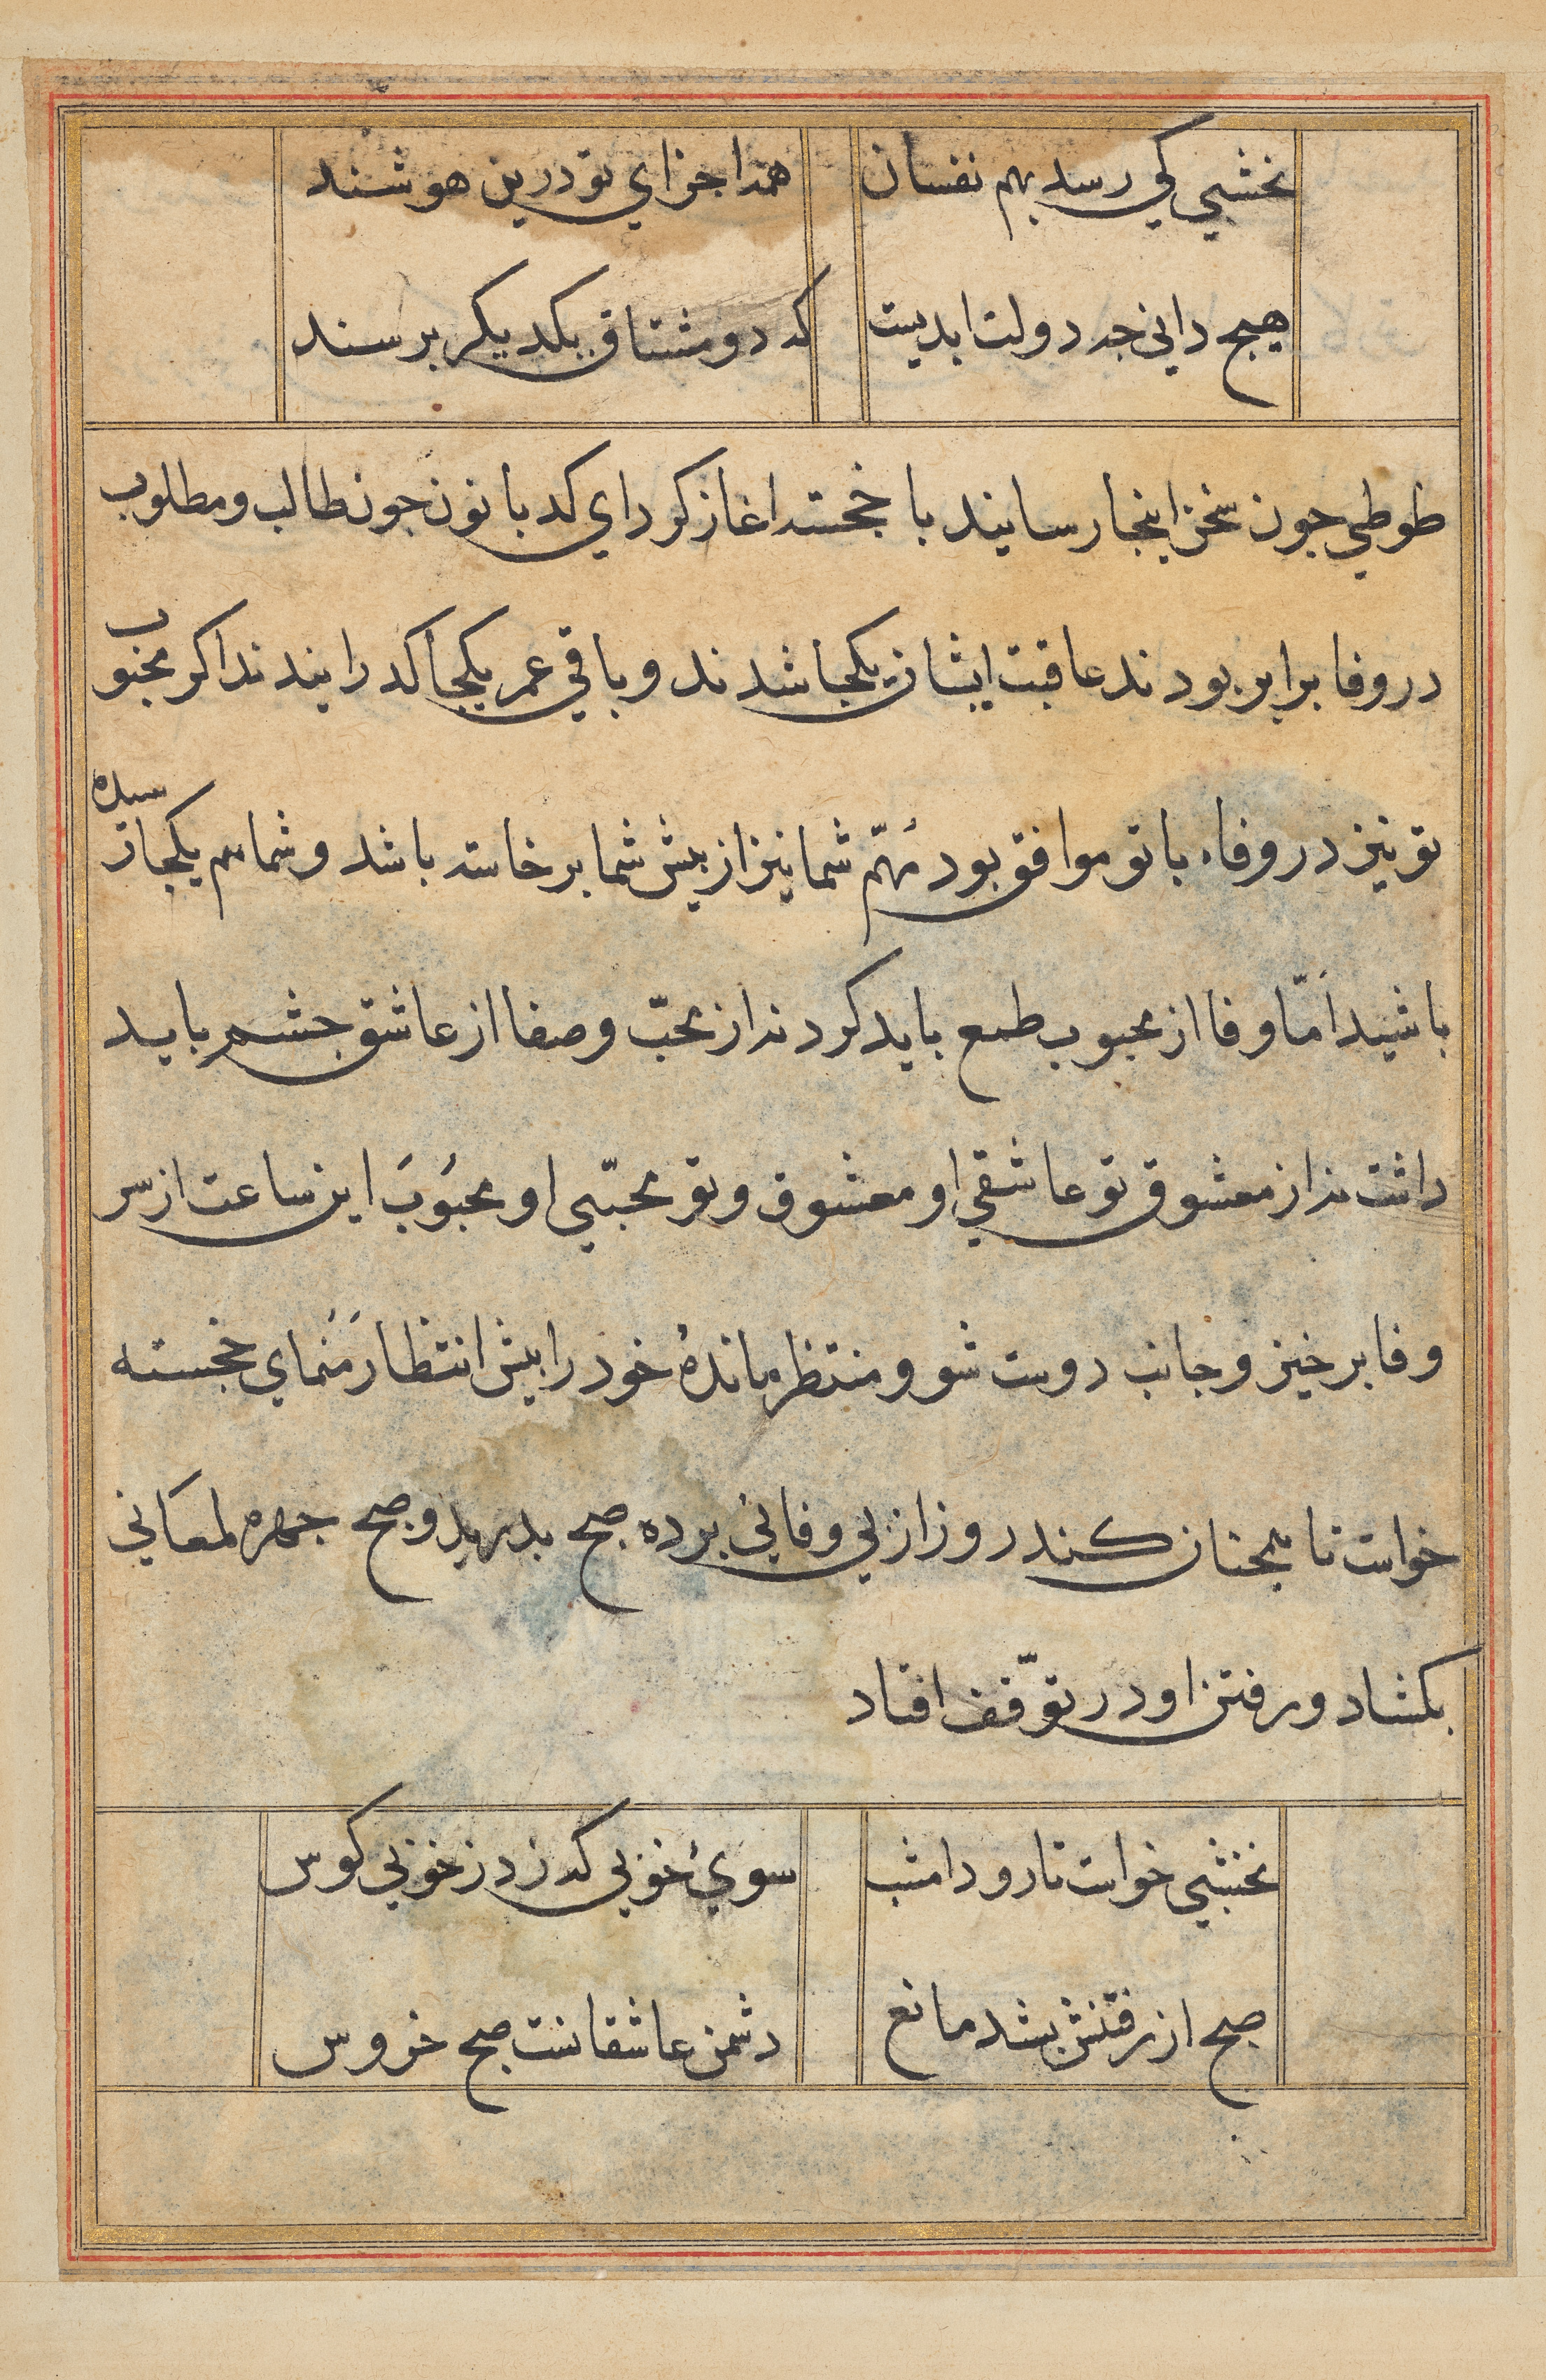 نخشبي كي رسد بهم نفسان همه اجزاي تو درين هوشند
هيچ داني جه دولت ابديست كه دو مشتاق بيكديكر برسند
طوطي جون سخن اينجا رسانيد با خجسته اغاز كرد اي كدبانو ن جون طالب و مطلوب
در وفا برابر بودند عاقبت ايشان يكجا شدند و باقي عمر يكجا كذرانيدند اكر محبوب
تو نيز در وفاء با تو موافق بود مُهمّ شما نيز از پيش شما برخاسته باشد و شما هم يكجا رسيده
باشيد اَمّا وفا از محبوب طمع بايد كرد نه از محبّ و صفا از عاشق جشم بايد
داشت نه از معشوق تو عاشقي او معشوق و تو محبّي او محبُوبَ اين ساعت از سر
وفا برخيز و جانب دوست شو و منتظر ماندهٔ خود را بيش انتظار مَنُماي خجسته
خواست تا همجنان كند روز از بي وفايئ پرده صبح بدريد و صبح جهره لمعاني
بكشاد و رفتن او در توقّف افتاد
نخشبي خواست تا رود امشب سوئ خوبي كه زد ز خوبي كوس
صبح از رفتنش بشد مانع دشمن عاشقانست صبح خروس